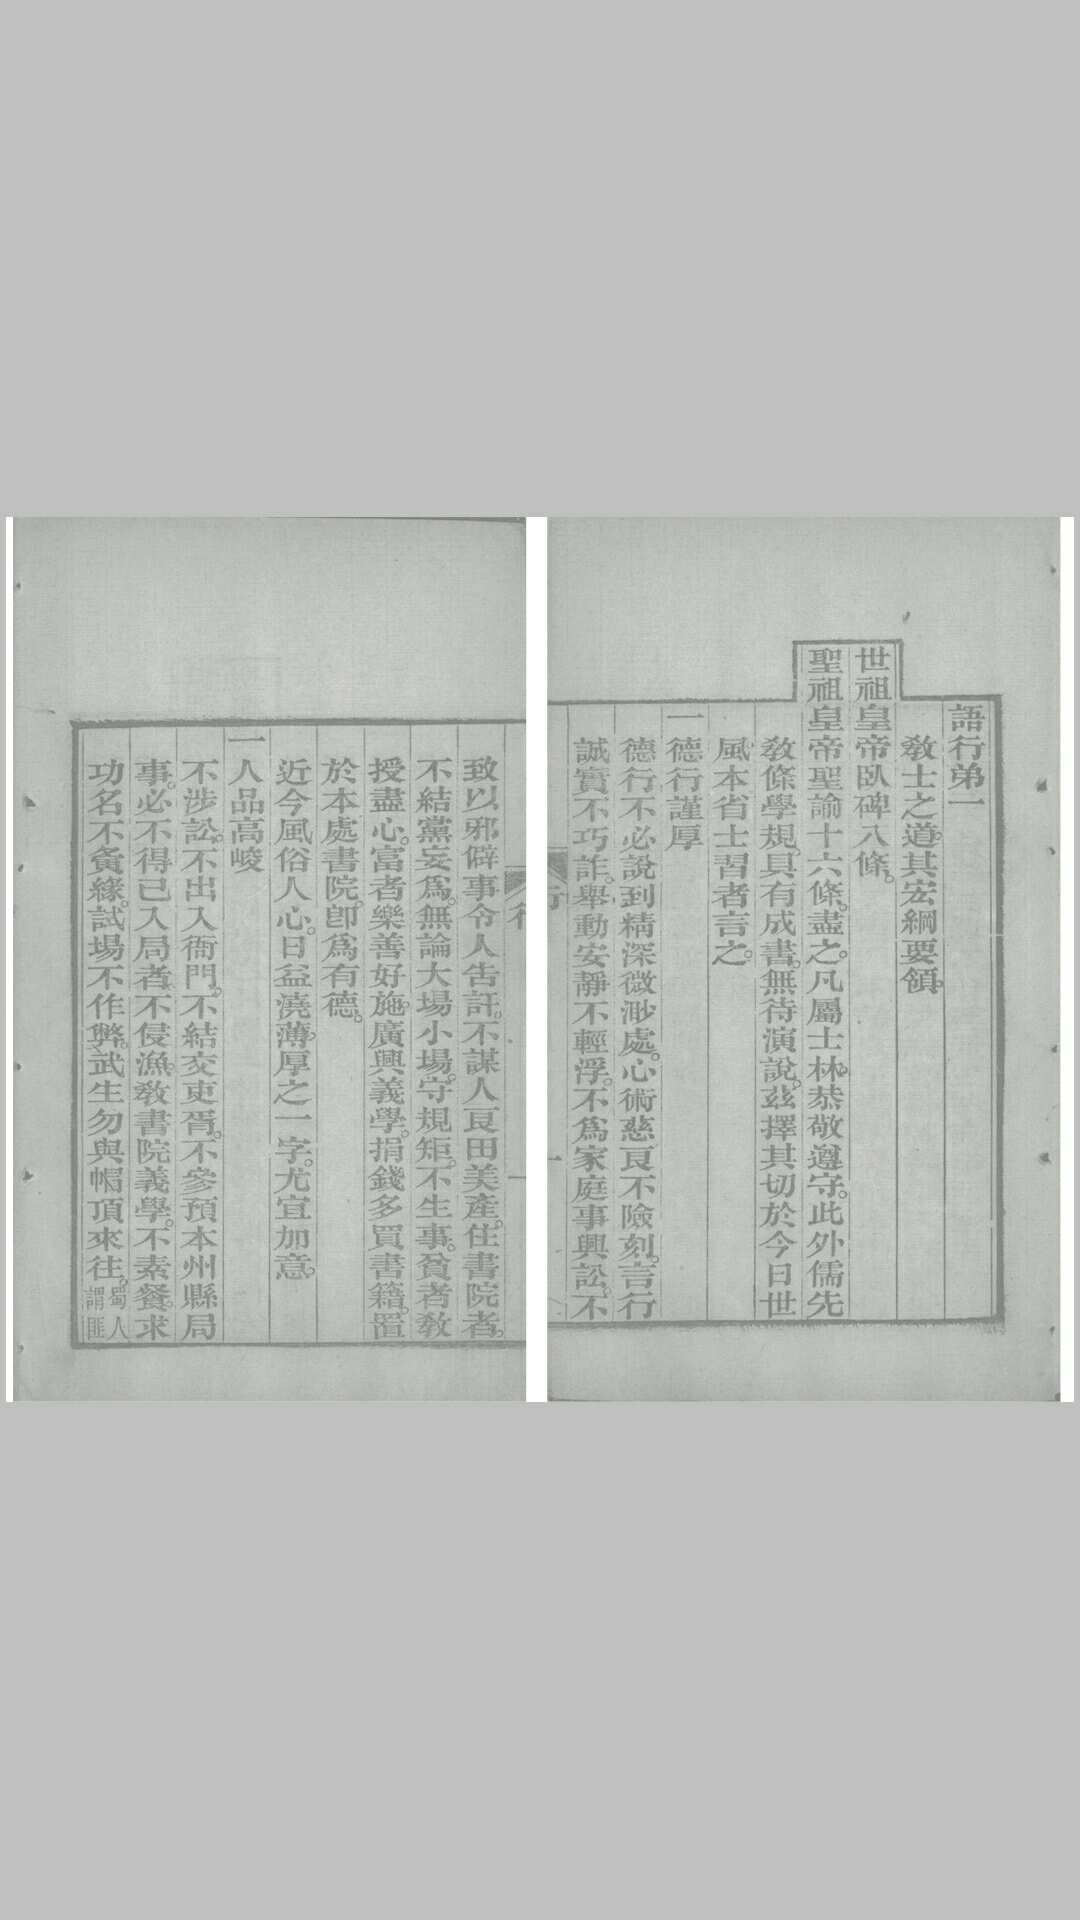 語行弟一
敎士之道。其宏綱要領。
世祖皇帝臥碑八條。
聖祖皇帝聖諭十六條。盡之。凡屬士林。恭敬遵守。此外儒先
敎條學規。具有成書。無待演說。茲擇其切於今日世
風本省士習者言之。
一德行謹厚
德行不必說到精深微渺處。心術慈良不險刻。言行
誠實不巧詐。舉動安靜不輕浮。不爲家庭事興訟。不
行
一
致以邪僻事令人吿訐。不謀人良田美產。住書院者。
不結黨妄爲。無論大場小場。守規矩。不生事。貧者敎
授盡心。富者樂善好施。廣興義學。捐錢多買書籍。置
於本處書院。卽爲有德。
近今風俗人心。日益澆薄。厚之一字。尤宜加意。
一人品高峻
不涉訟。不出入衙門。不結交吏胥。不參預本州縣局
事。必不得已入局者。不侵漁。敎書院義學。不素餐。求
功名不夤緣。試場不作弊。武生勿與帽頂來往。蜀人
謂匪